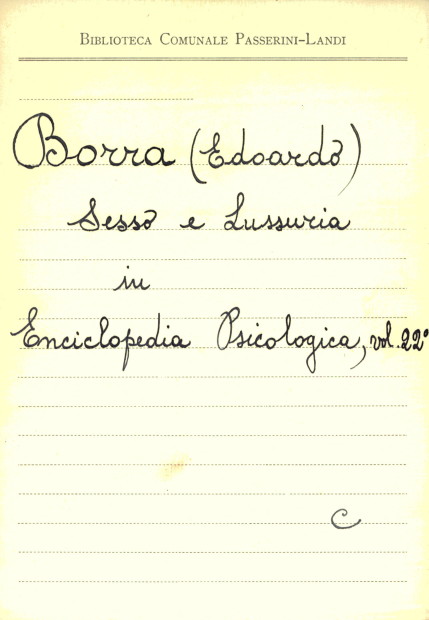 Biblioteca Comunale Passerini-Landi
Borra (Edoardo)
Sesso e Lussuria
in
Enciclopedia Psicologica, vol. 22°
C